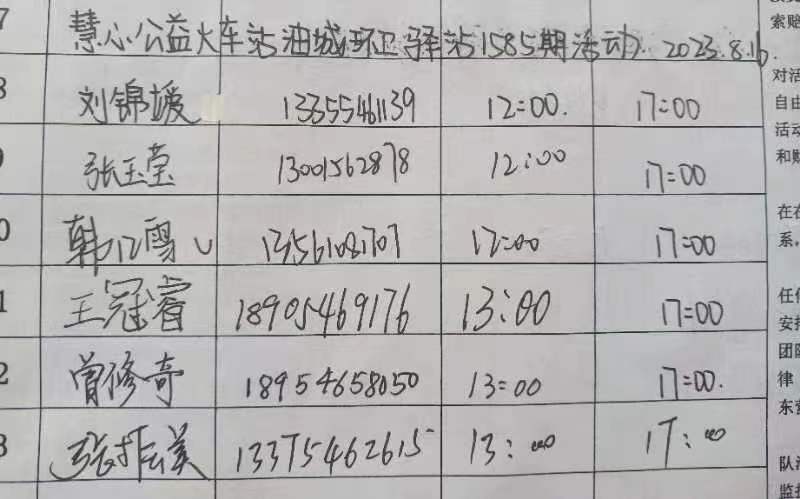 7 慧心公益火车站油城环卫驿站1585期活动 2023.8.16.
8 刘锦媛 13355461139 12:00. 17:00
9 张玉莹 13001562878 12:00 17:00
0 韩江雪 13561081707 12:00 17:00
1 王冠睿 18905469176 13:00 17:00
2 曾修奇 18954658050 13:00 17:00.
3 张 美 13375462615 13:00 17:00
索赔
对活
自由
活动
和财
在在
系,
任何
安排
团队
律
东营
队活
监护